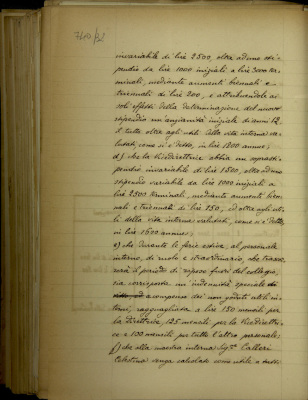 invariabile di lire 2500, oltre ad uno sti-
pendio da lire 1000 iniziali a lire 3000 ter-
minali, mediante aumenti biennali e
triennali di lire 200, e attribuendole ai
soli effetti della determinazione del nuovo
stipendio un'anzianità iniziale di anni 12.
Il tutto oltre agli utili della vita interna va-
lutati, come si è detto, in lire 1800 annue;
d) che la Vicedirettrice abbia un soprasti-
pendio invariabile di lire 1500, oltre ad uno
stipendio variabile da lire 1000 iniziali a
lire 2500 terminali, mediante aumenti bien-
nali e triennali di lire 150, ed oltre agli uti-
li della vita interna valutati, come si è detto,
in lire 1800 annue;
e) che durante le ferie estive, al personale
interno, di ruolo e straordinario, che trascor-
rerà il periodo di riposo fuori del collegio,
sia corrisposta un'indennità speciale di
a compenso dei non goduti utili in-
terni, ragguagliata a lire 150 mensili per
la Direttrice, 125 mensili per la Vicedirettri-
ce e 100 mensili per tutto l'altro personale;
f) che alla maestra interna Sig.na Calleri
Celestina venga valutato come utile a tutti